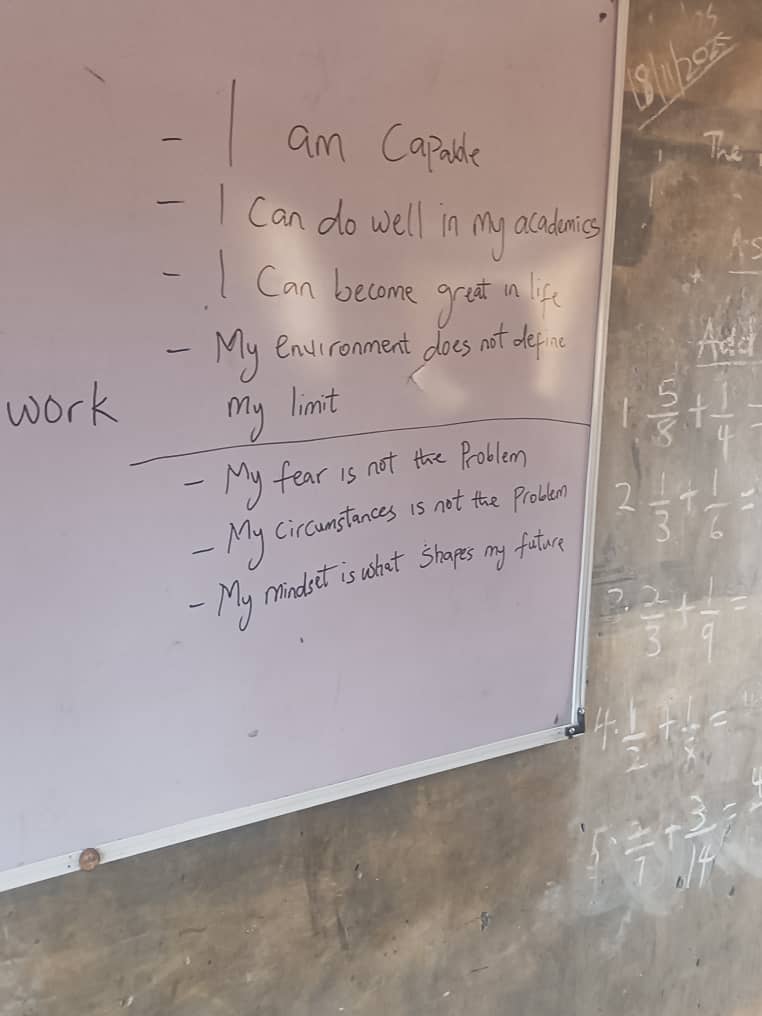 - I am Capable
- I Can do well in my academics
- I Can become great in life
- My environment does not define
my limit
work
- My fear is not the Problem
- My Circumstances is not the Problem
- My mindset is what Shapes my future
18/11/2025
The
Add
1. 5/8 + 1/4 =
2. 1/3 + 1/6 =
3. 2/3 + 1/9 =
4. 1/2 + 1/8 =
5. 2/7 + 3/14 =